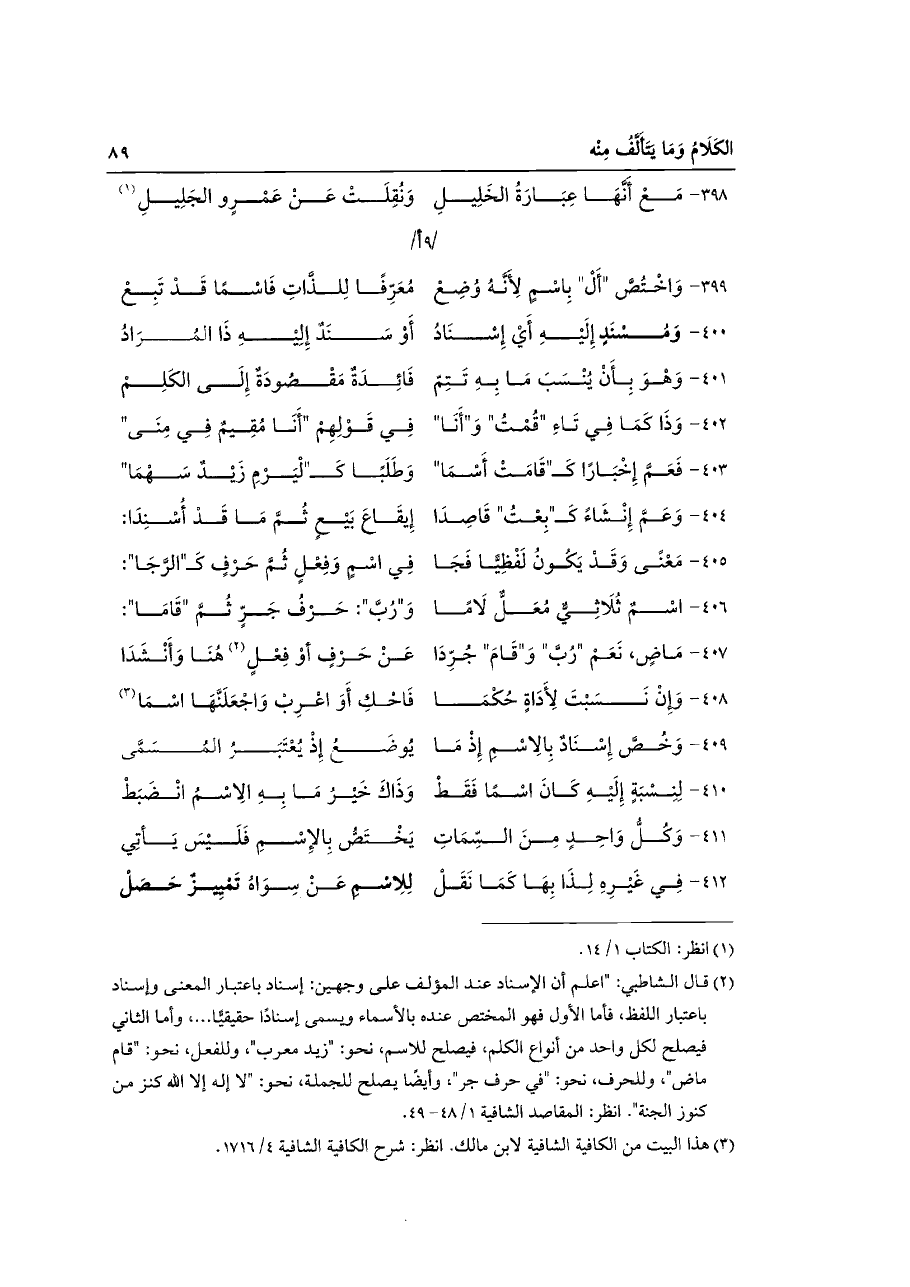 الكَلَامُ وَمَا يَتَأَلَّفُ مِنْه ٨٩
٣٩٨- مَـعْ أَنَّهَـا عِبَـارَةُ الخَلِيـلِ وَنُقِلَـتْ عَـنْ عَمْـرٍو الجَلِيـلِ (١)
/٩أ/
٣٩٩- وَاخْـتُصَّ "أَلْ" بِاسْمٍ لِأَنَّـهُ وُضِـعْ مُعَرِّفًـا لِلـذَّاتِ فَاسْـمًا قَـدْ تَبِـعْ
٤٠٠- وَمُـسْنَدٍ إِلَيْـهِ أَيْ إِسْـنَادُ أَوْ سَـنَدٌ إِلَيْـهِ ذَا المُـرَادُ
٤٠١- وَهْـوَ بِـأَنْ يُنْسَبَ مَـا بِـهِ تَـتِمّ فَائِـدَةٌ مَقْـصُودَةٌ إِلَـى الكَلِـمْ
٤٠٢- وَذَا كَمَـا فِـي تَـاءِ "قُمْتُ" وَ"أَنَـا" فِـي قَـوْلِهِمْ "أَنَـا مُقِيمٌ فِـي مِنَـى"
٤٠٣- فَعَـمَّ إِخْبَـارًا كَـ"قَامَتْ أَسْـمَا" وَطَلَبًـا كَـ"لْيَـرْمِ زَيْـدٌ سَـهْمَا"
٤٠٤- وَعَـمَّ إِنْـشَاءً كَـ"بِعْـتُ" قَاصِـدَا إِيقَـاعَ بَيْـعٍ ثُـمَّ مَـا قَـدْ أُسْـنِدَا:
٤٠٥- مَعْنًـى وَقَـدْ يَكُـونُ لَفْظِيًّـا فَجَـا فِـي اسْمٍ وَفِعْـلٍ ثُمَّ حَرْفٍ كَـ"الرَّجَا":
٤٠٦- اسْـمٌ ثُلَاثِـيٌّ مُعَـلٌّ لَامًـا وَ"رُبَّ": حَـرْفُ جَـرٍّ ثُـمَّ "قَامَـا":
٤٠٧- مَـاضٍ، نَعَـمْ "رُبَّ" وَ"قَامَ" جُرِّدَا عَـنْ حَـرْفٍ أوْ فِعْـلٍ (٢) هُنَـا وَأَنْـشَدَا
٤٠٨- وَإِنْ نَـسَبْتَ لِأَدَاةٍ حُكْمَـا فَاحْـكِ أَوَ اعْـرِبْ وَاجْعَلَنَّهَـا اسْمَا (٣)
٤٠٩- وَخُـصَّ إِسْـنَادٌ بِالِاسْـمِ إِذْ مَـا يُوضَـعُ إِذْ يُعْتَبَـرُ المُـسَمَّى
٤١٠- لِنِـسْبَةٍ إِلَيْـهِ كَـانَ اسْـمًا فَقَـطْ وَذَاكَ خَيْـرُ مَـا بِـهِ الِاسْـمُ انْـضَبَطْ
٤١١- وَكُـلُّ وَاحِـدٍ مِـنَ الـسِّمَاتِ يَخْـتَصُّ بِالِاسْـمِ فَلَـيْسَ يَـأتِي
٤١٢- فِـي غَيْـرِهِ لِـذَا بِهَـا كَمَـا نَقَـلْ لِلِاسْـمِ عَـنْ سِـوَاهُ تَمْيِيـزٌ حَـصَلْ
(١) انظر: الكتاب ١/ ١٤.
(٢) قال الشاطبي: "اعلم أن الإسناد عند المؤلف على وجهين: إسناد باعتبار المعنى وإسناد
باعتبار اللفظ، فأما الأول فهو المختص عنده بالأسماء ويسمى إسنادًا حقيقيًّا...، وأما الثاني
فيصلح لكل واحد من أنواع الكلم، فيصلح للاسم، نحو: "زيد معرب"، وللفعل، نحو: "قام
ماض"، وللحرف، نحو: "في حرف جر"، وأيضًا يصلح للجملة، نحو: "لا إله إلا الله كنز من
كنوز الجنة". انظر: المقاصد الشافية ١/ ٤٨- ٤٩.
(٣) هذا البيت من الكافية الشافية لابن مالك. انظر: شرح الكافية الشافية ٤/ ١٧١٦.